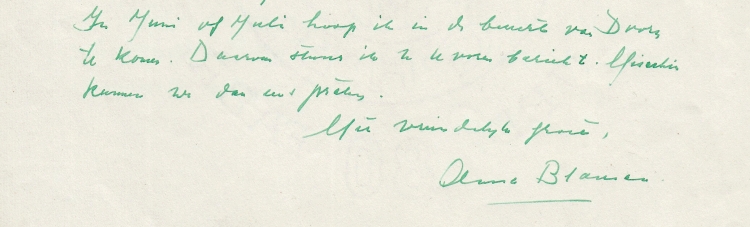 In Juni of Juli hoop ik in de buurt van Doorn
te komen. Daarom stuur ik u te voren bericht. Misschien
kunnen we dan eens praten.
Met vriendelijke groeten,
Anna Blaman